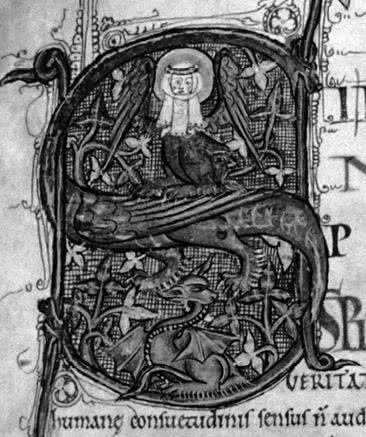 S
N
P
SPI
VERITAT
humanę consuetudinis sensus n̄ aud